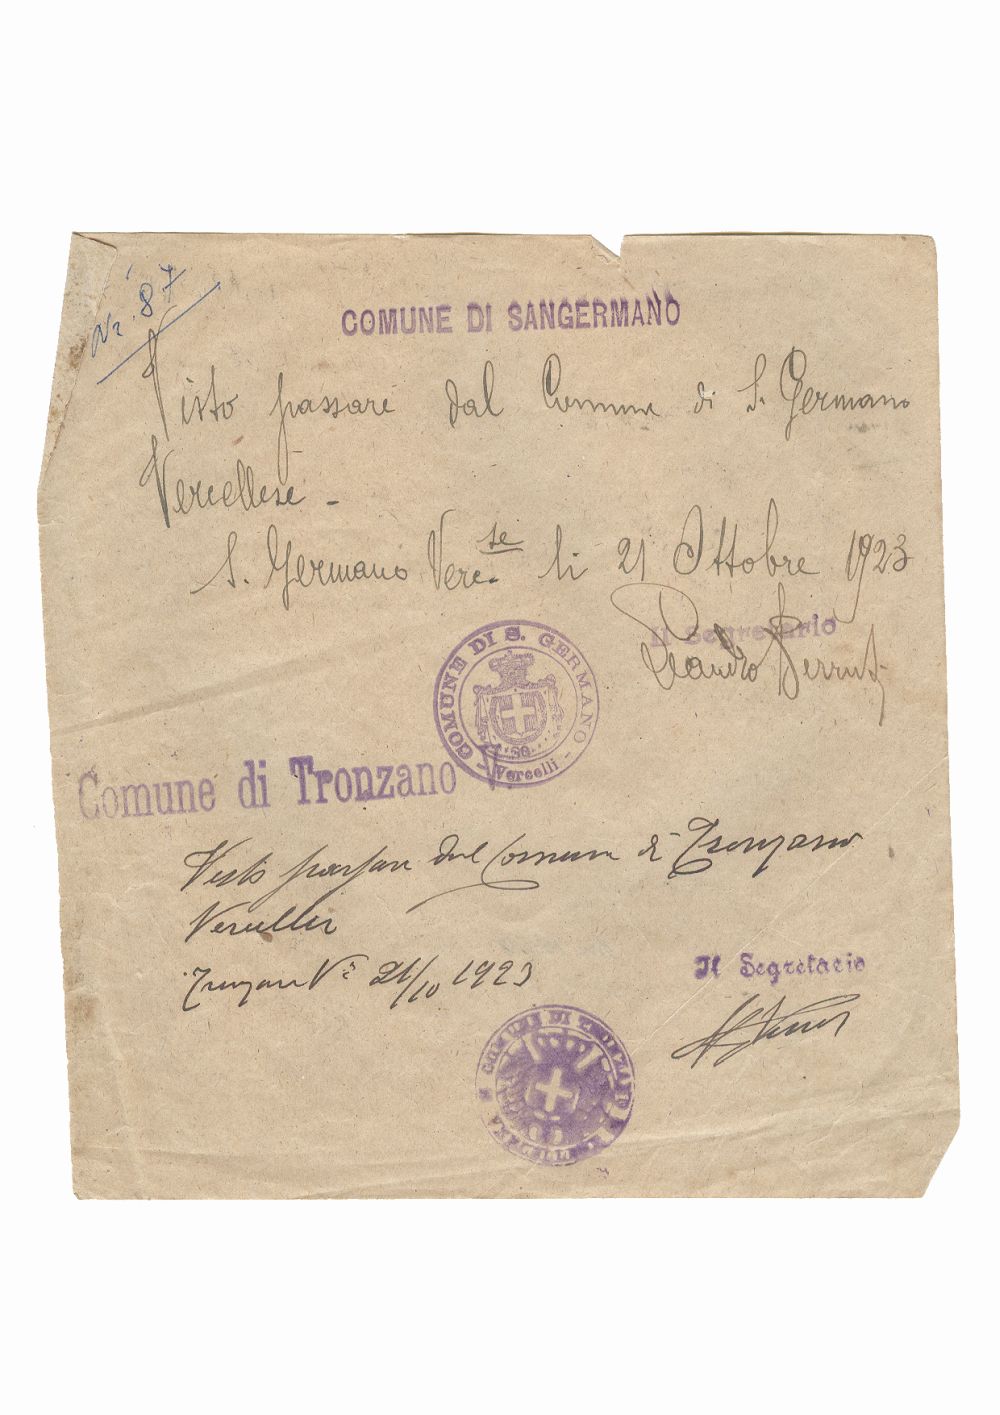 Nr. 87
COMUNE DI SANGERMANO
Visto passare dal Comune di S. Germano
Vercellese -
S. Germano Verc.se li 21 Ottobre 1923
Il Segretario
COMUNE DI S. GERMANO
- Vercelli -
Comune di Tronzano V.
Visto passare dal Comune di Tronzano
Vercellese
Tronzano V.se 21/10 1923
Il Segretario